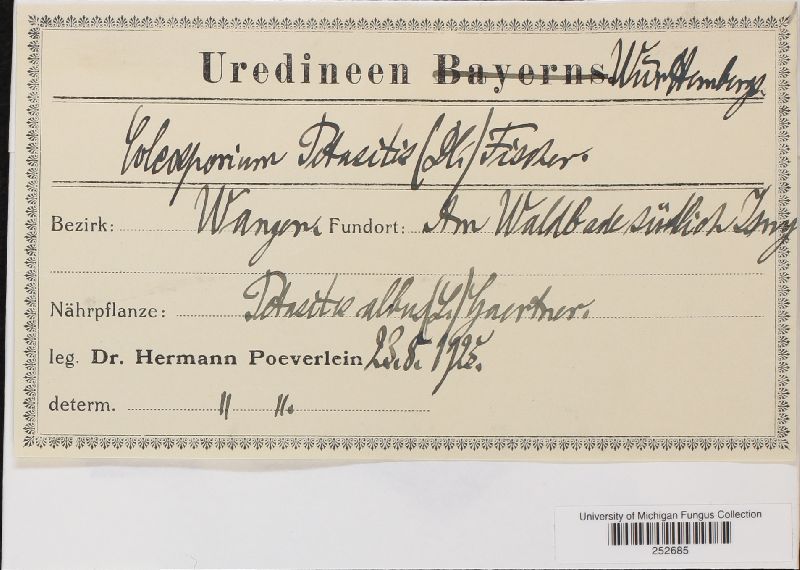 Uredineen Bayerns Württembergs.
Coleosporium Petasitis (DC.) Fischer.
Bezirk: Wangen. Fundort: Am Waldbade südlich Isny
Nährpflanze: Petasitis albus (L.) Gaertner.
leg. Dr. Hermann Poeverlein 23.8.1925.
determ. " ".
University of Michigan Fungus Collection
252685